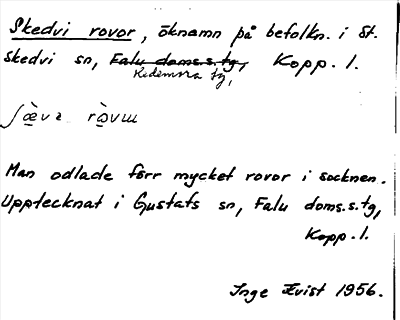 Skedvi rovor, öknamn på befolkn. i St.
Skedvi sn, Falu doms.s.tg, Kopp. l.
Hedemora tg,
rovor
Man odlade förr mycket rovor i socknen.
Upptecknat i Gustafs sn, Falu doms.s.tg,
Kopp. l.
Inge Kvist 1956.